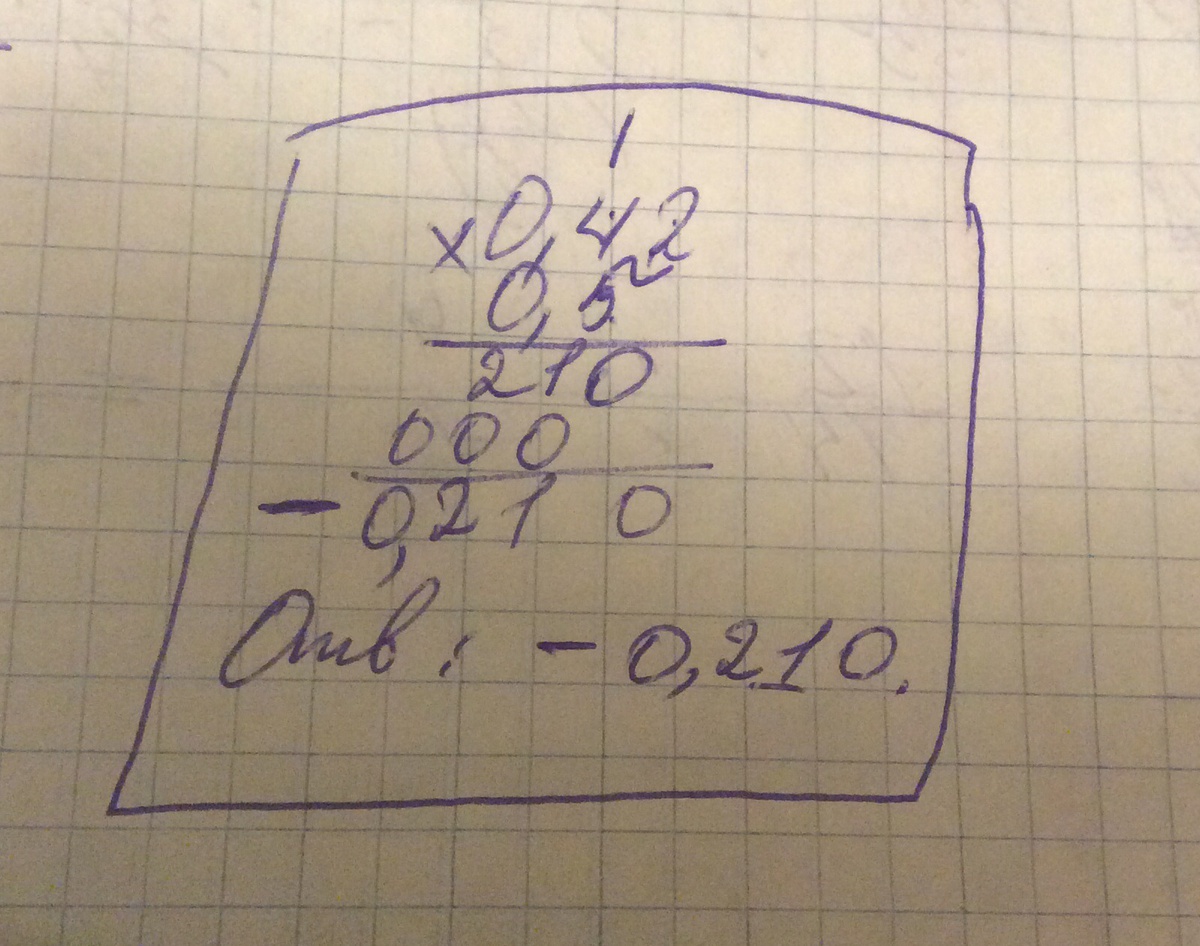 1
× 0,42
0,5
210
000
- 0,21 0
Отв: - 0,210.